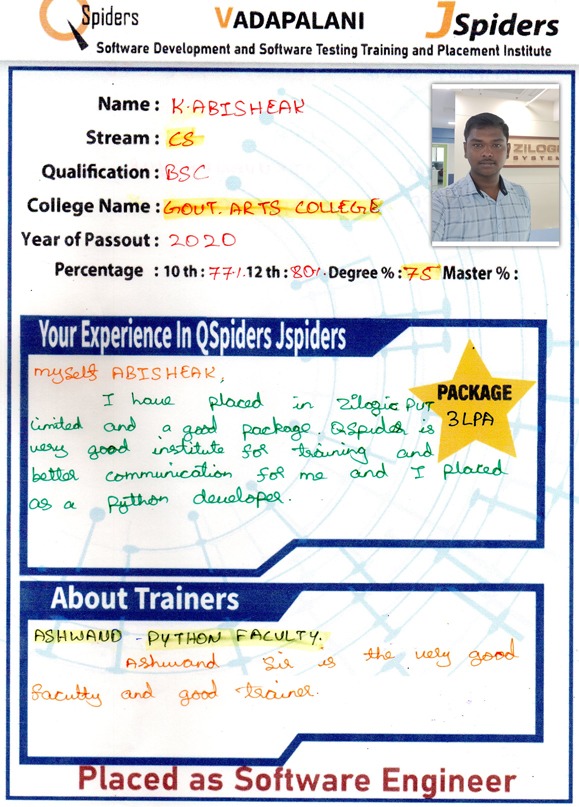 QSpiders VADAPALANI JSpiders
Software Development and Software Testing Training and Placement Institute
Name : K.ABISHEAK
Stream : CS
Qualification : BSC
College Name : GOVT. ARTS COLLEGE
Year of Passout : 2020
Percentage : 10 th : 77%. 12 th : 80%. Degree % : 75 Master % :
ZILOGIC
SYSTEM
Your Experience In QSpiders Jspiders
myself ABISHEAK,
I have placed in Zilogic PVT
Limited and a good package. QSpider is
very good institute for training and
better communication for me and I placed
as a Python developer.
PACKAGE
3LPA
About Trainers
ASHWAND - PYTHON FACULTY.
Ashwand Sir is the very good
faculty and good trainer.
Placed as Software Engineer